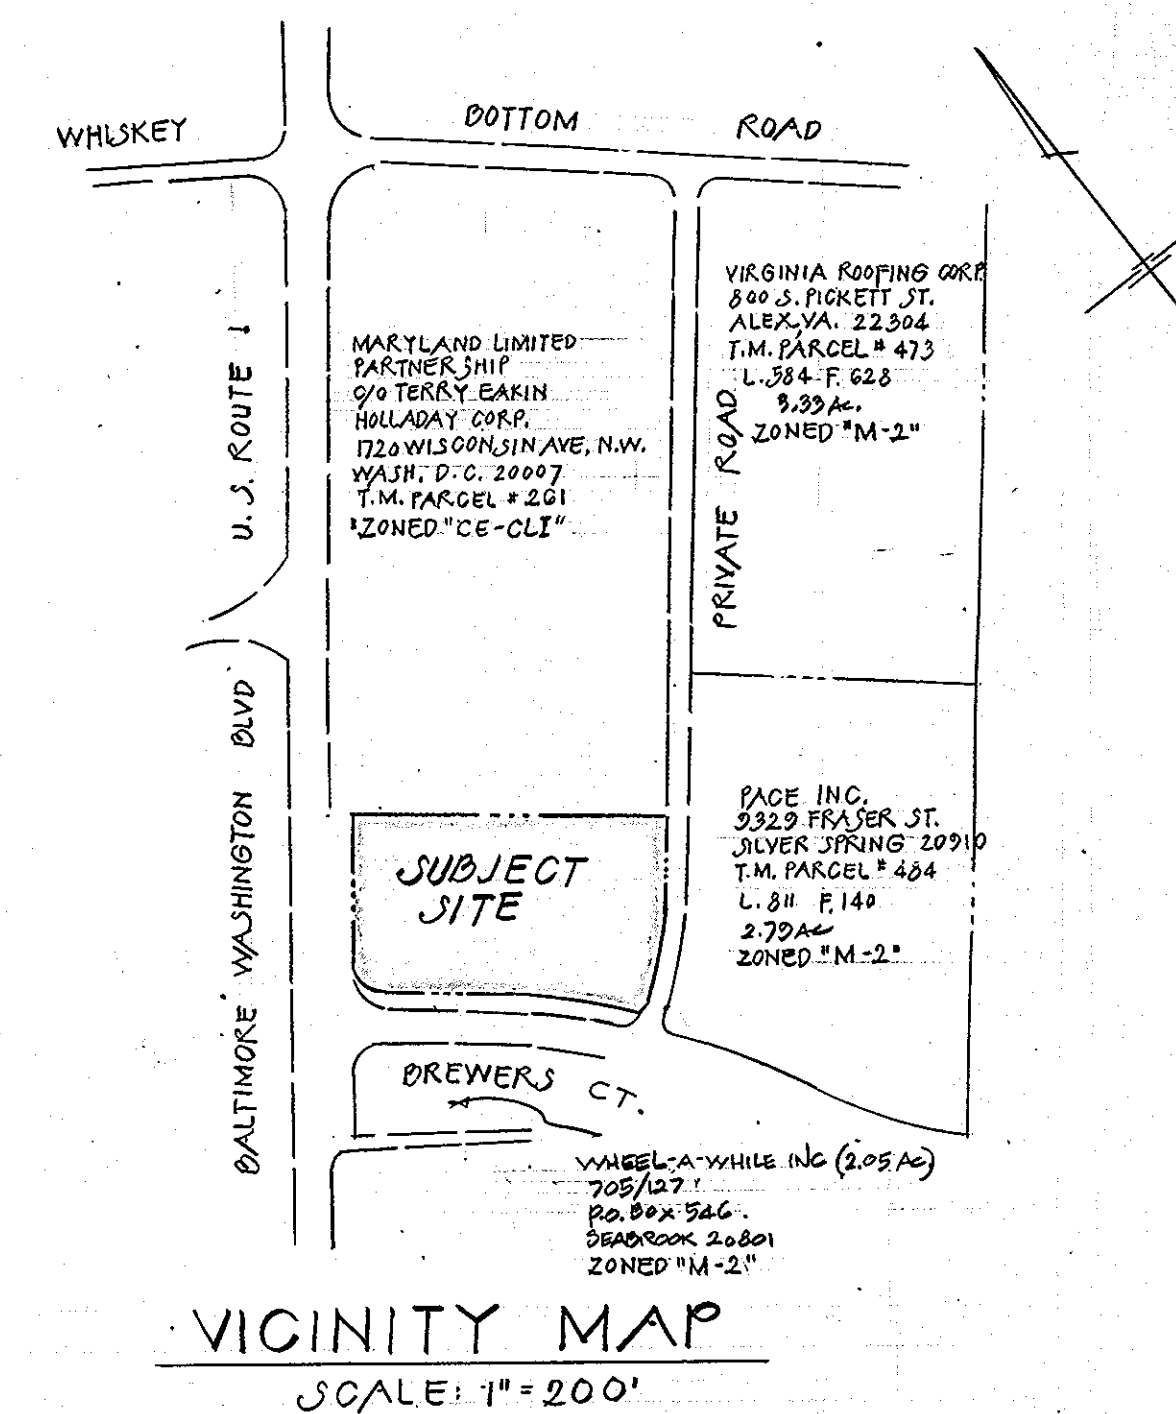 WHISKEY BOTTOM ROAD
U.S. ROUTE 1
MARYLAND LIMITED
PARTNERSHIP
C/O TERRY EAKIN
HOLLADAY CORP.
1720 WISCONSIN AVE, N.W.
WASH. D.C. 20007
T.M. PARCEL # 261
ZONED "CE-CLI"
PRIVATE ROAD
VIRGINIA ROOFING CORP.
800 S. PICKETT ST.
ALEX, VA. 22304
T.M. PARCEL # 473
L. 584 F. 628
3.33 Ac.
ZONED "M-2"
BALTIMORE WASHINGTON BLVD
SUBJECT
SITE
PACE INC.
9329 FRASER ST.
SILVER SPRING 20910
T.M. PARCEL # 484
L. 811 F. 140
2.79 Ac
ZONED "M-2"
BREWERS CT.
WHEEL-A-WHILE INC (2.05 Ac)
705/127
P.O. BOX 546.
SEABROOK 20801
ZONED "M-2"
VICINITY MAP
SCALE: 1" = 200'